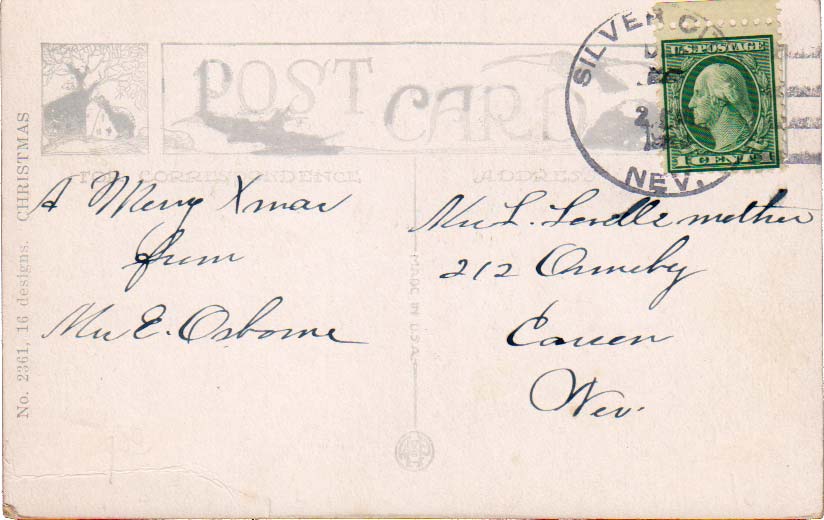 SILVER CITY
NEV.
U.S. POSTAGE
1 CENT 1
POST CARD
FOR CORRESPONDENCE
ADDRESS
A Merry Xmas
from
Mrs E. Osborne
Mrs L. Lovells mother
212 Ormsby
Carson
Nev.
MADE IN U.S.A.
No. 2361, 16 designs. CHRISTMAS